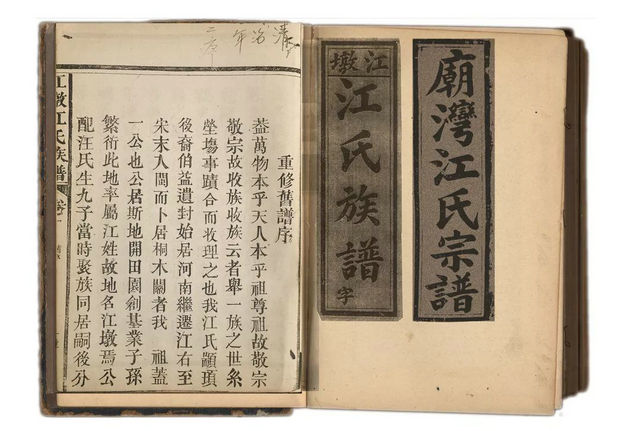 廟灣江氏宗譜
江墩
江氏族譜
字
重修舊譜序
蓋萬物本乎天人本乎祖尊祖故敬宗
敬宗故收族收族云者舉一族之世系
塋塲事蹟合而收理之也我江氏顓頊
後裔伯益遺封始居河南繼遷江右至
宋末入閩而卜居桐木關者我 祖蓋
一公也公居斯地開田園創基業子孫
繁衍此地率屬江姓故地名江墩焉公
配汪氏生九子當時聚族同居嗣後分
江墩江氏族譜 卷一